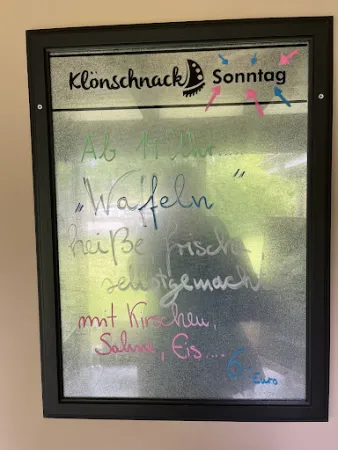 Klönschnack Sonntag
Ab 11 Uhr....
"Waffeln"
heiße frische
selbstgemacht
mit Kirschen,
Sahne, Eis....
6,-
Euro